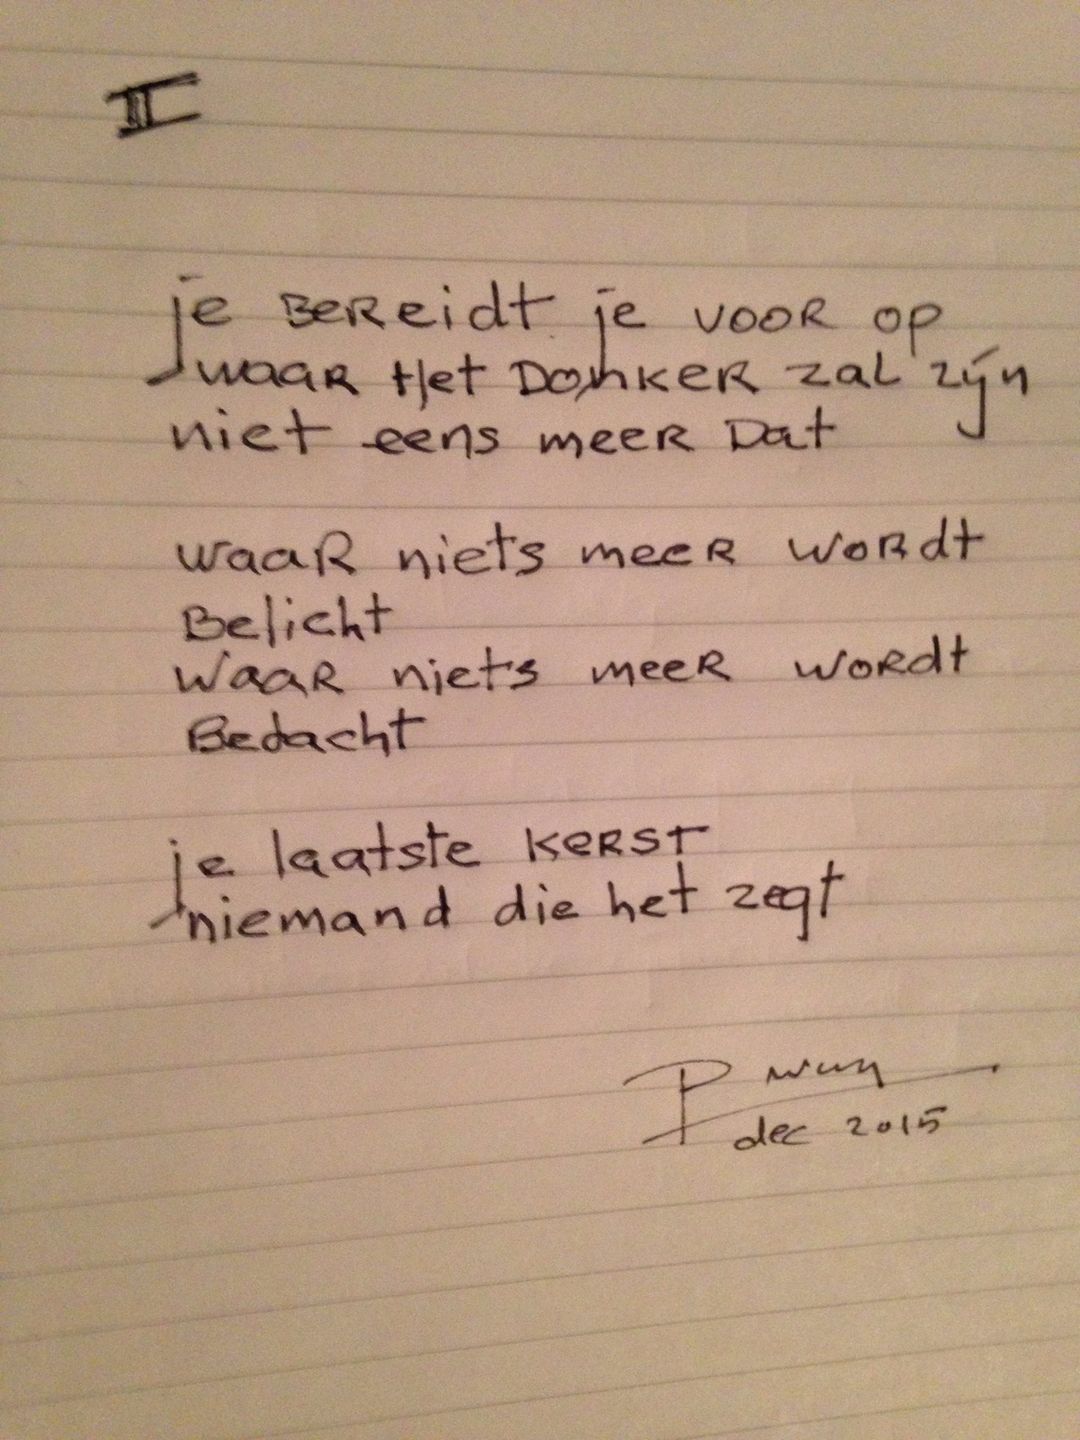 II
je BeReidt je vooR op
waaR Het DonKeR zal zijn
niet eens meeR Dat
waaR niets meeR woRdt
Belicht
waaR niets meeR woRdt
Bedacht
je laatste KeRST
niemand die het zegt
P
dec 2015